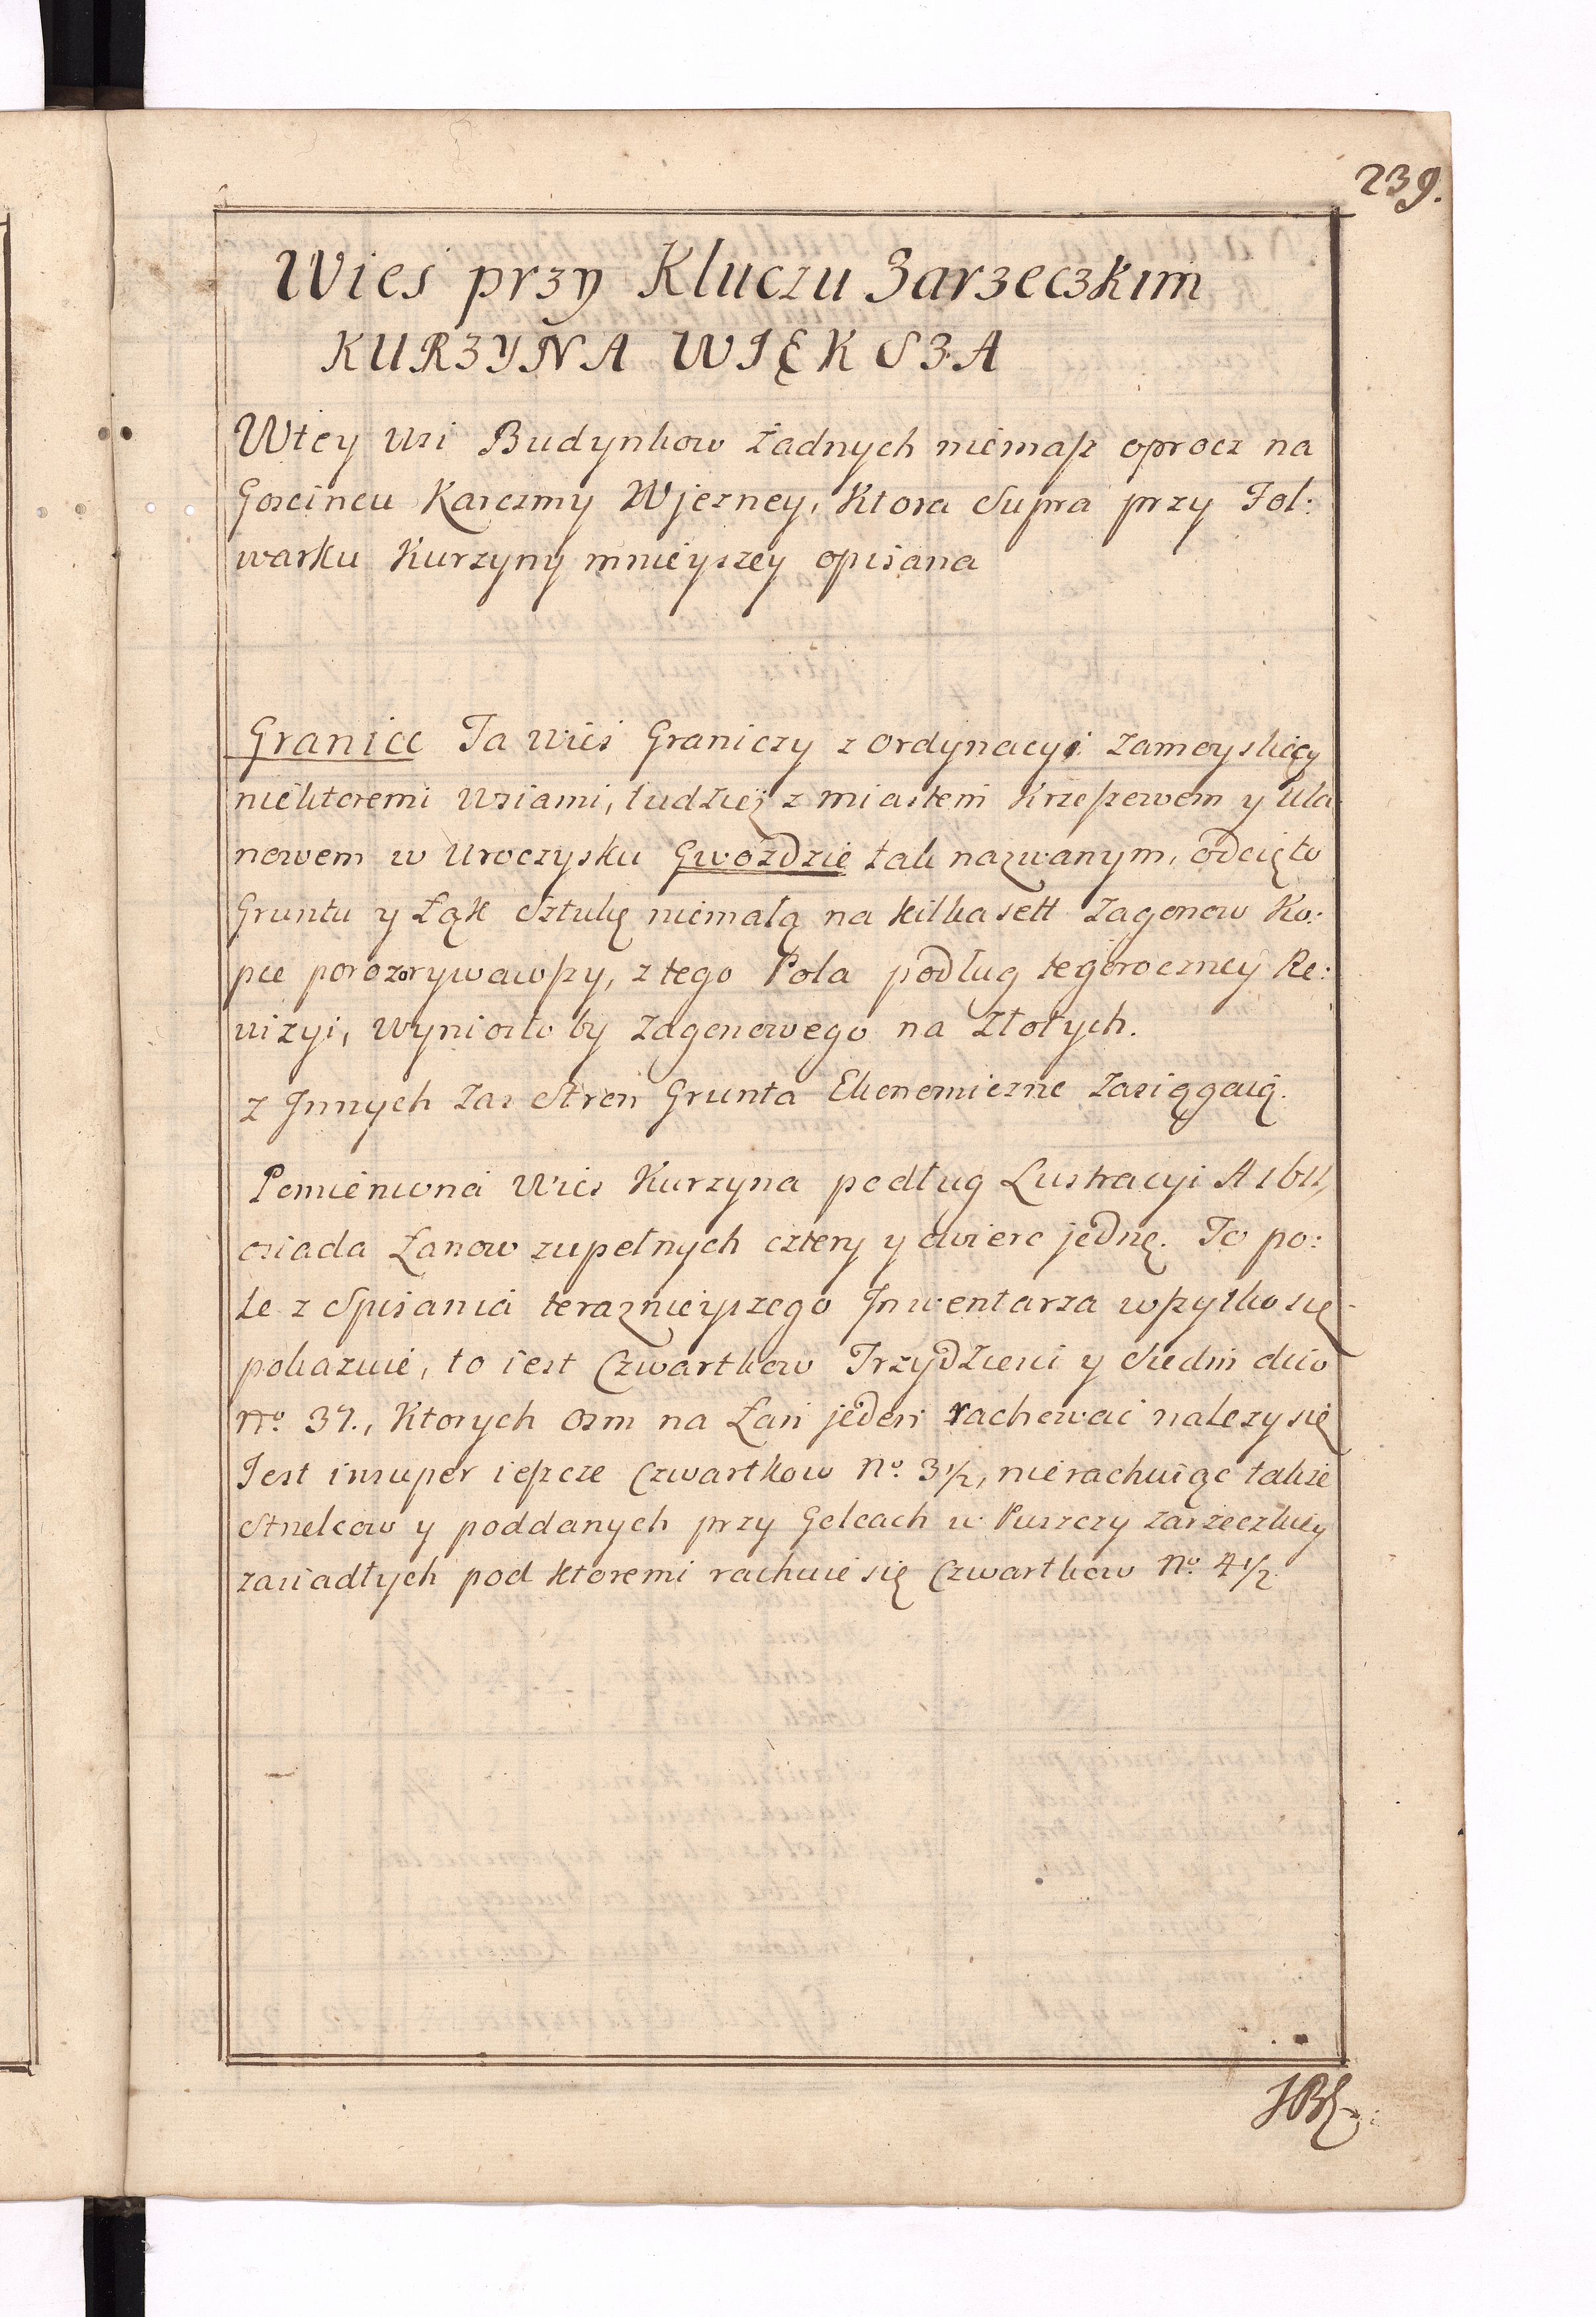 239.
Wies przy Kluczu Zarzeczkim
KURZYNA WIĘKSZA
Wtey Wsi Budynkow Żadnych niemasz oprocz na
Goscincu Karczmy Wjezney, Ktora Supra przy Fol:
warku Kurzyny mnieyszey opisana
Granice Ta Wies Graniczy z Ordynacyi Zamoyskiey
niektoremi Wsiami, tudziesz z miastem Krzeszewem y Ula
nowem w Uroczysku Gwozdzie tak nazwanym, odcięto
Gruntu y Łąk Sztukę niemałą na kilkasett Zagonow Ko:
pce porozorywawszy, z tego Pola podług tegoroczney Re:
wizyi, wyniosło by Zagonowego na Złotych.
z Innych Zas Stron Grunta Ekonomiczne Zasiągaią.
Pomieniona Wies Kurzyna podług Lustracyi A 1611,
osiada Łanow zupełnych cztery y cwierc jednę. To po:
le z Spisania teraznieyszego Inwentarza wszytko się
pokazuie, to iest Czwartkow Trzydziesci y Siedm
No. 37., Ktorych osm na Łan jeden rachować nalezy się
Jest insuper ieszcze Czwartkow No. 3 1/2, nierachuiąc takze
Strzelcow y poddanych przy Golcach w Puszczy Zarzeczkiey
zasiadłych pod ktoremi rachuie się Czwartkow No. 4 1/2